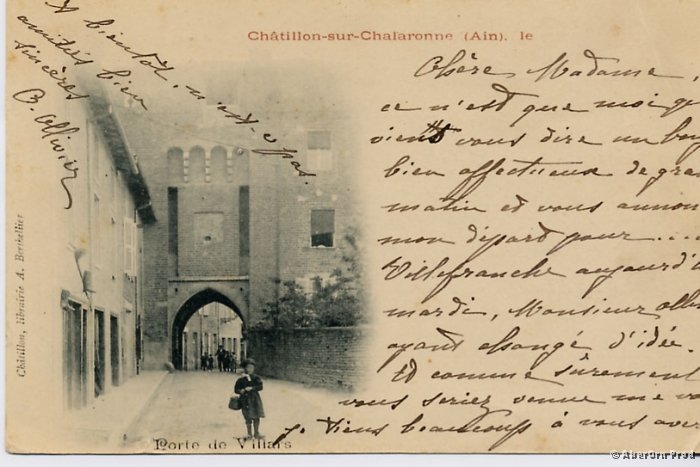 Châtillon-sur-Chalaronne (Ain), le
Chère Madame,
ce n'est que moi qui
vient vous dire un bo
bien affectueux de gran
matin et vous annon
mon départ pour ....
Villefranche aujourd'
mardi, Monsieur Olli
ayant changé d'idée.
Et comme sûrement
vous seriez venue me vo
je tiens beaucoup à vous aver
A bientôt, n'est-ce pas.
amitiés bien
sincères
C. Ollivier
Châtillon, librairie A. Berthellier
Porte de Villars
© AberOrn Pros